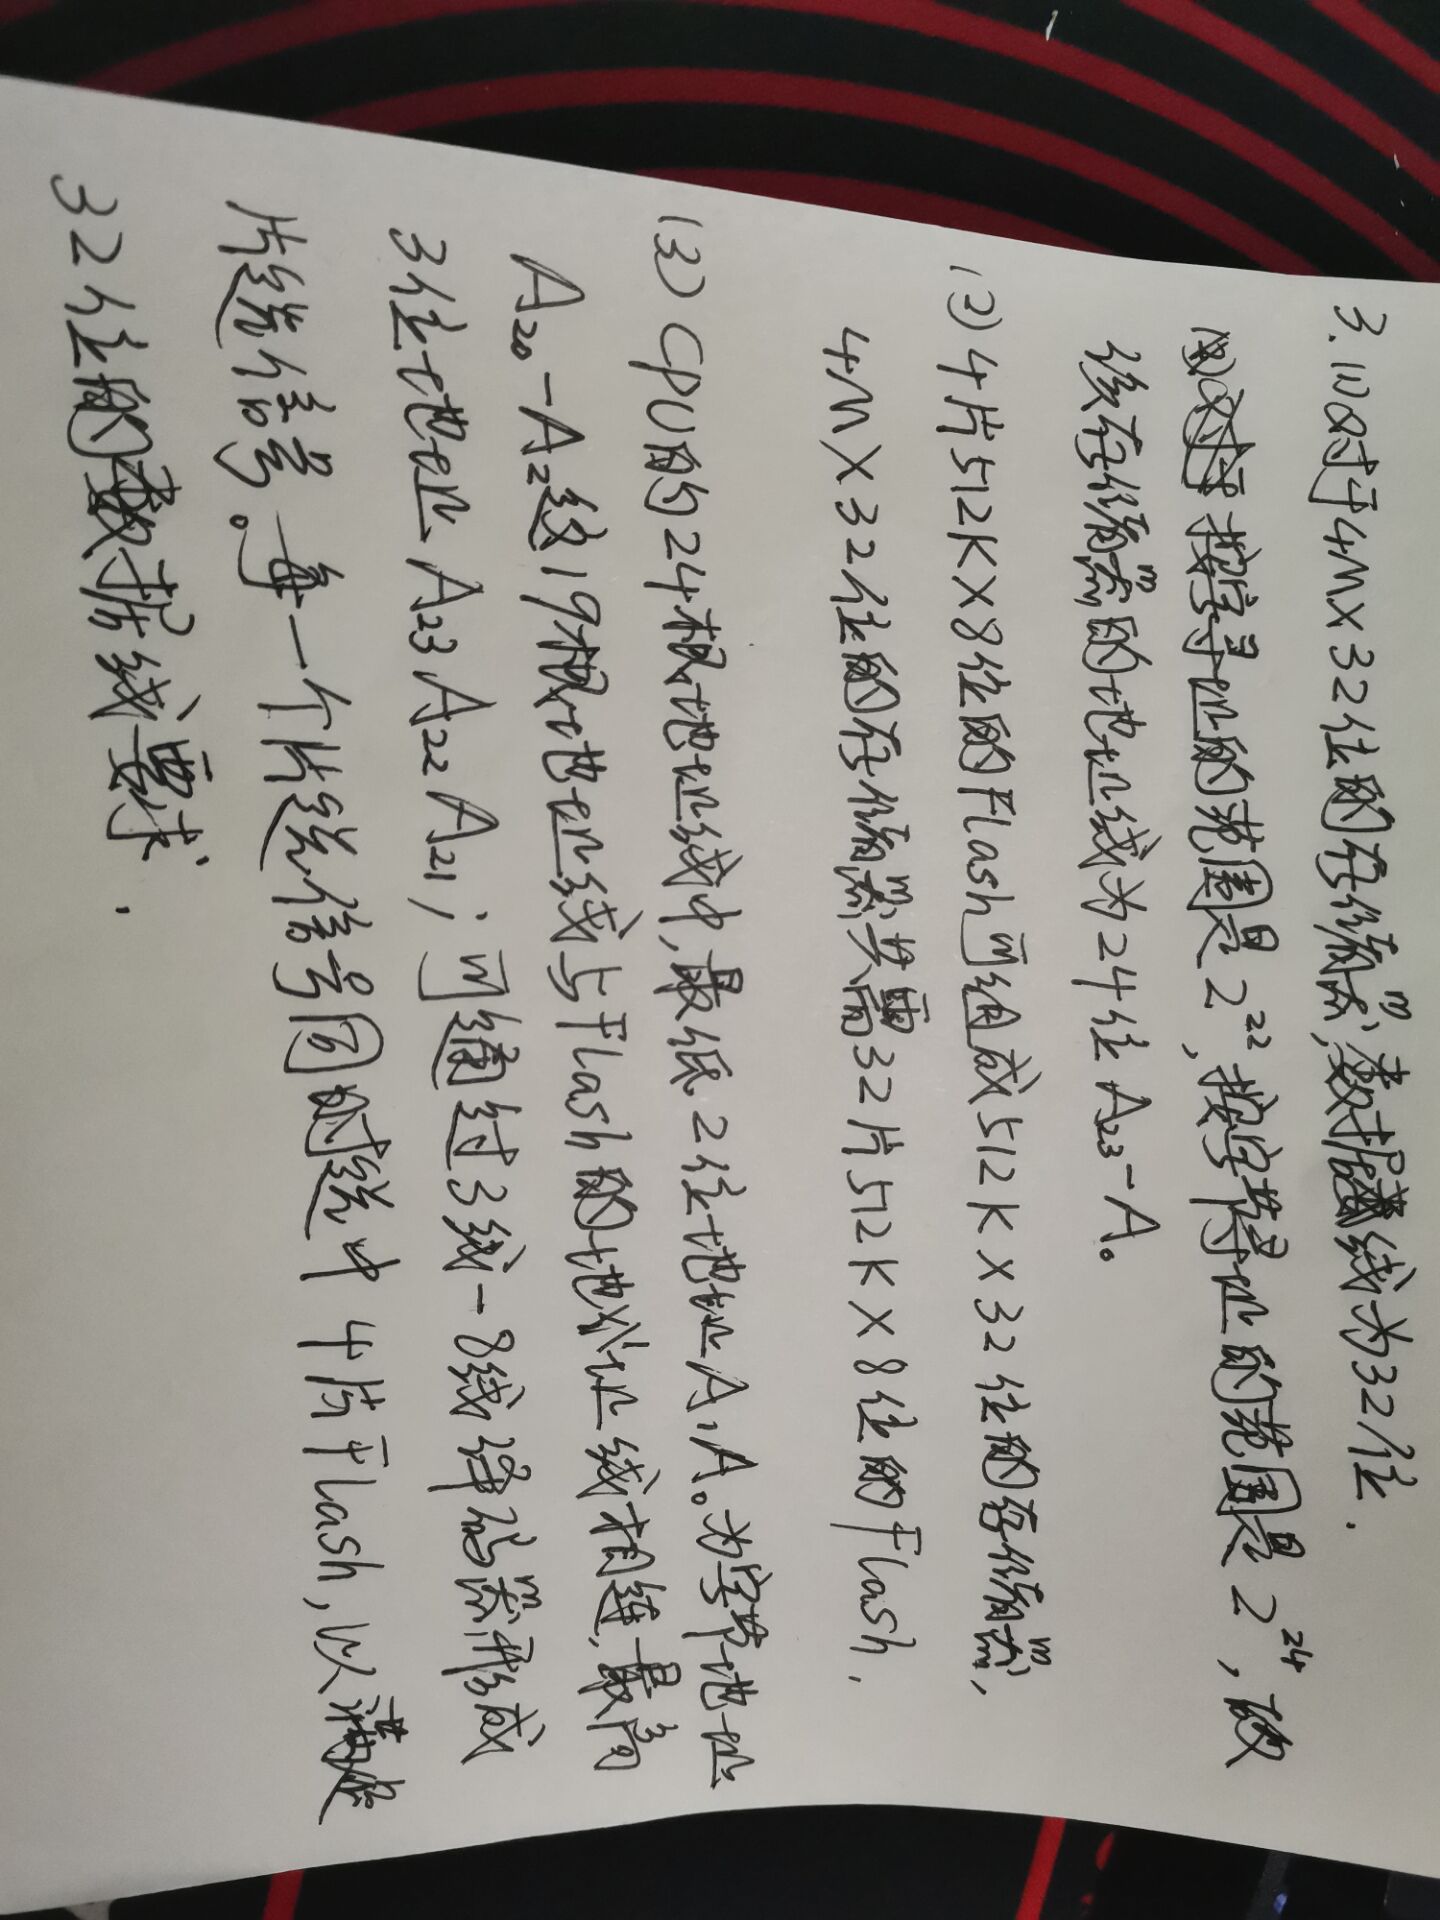 3.(1)对于4M×32位的存储器,数据线为32位.
按字寻址的范围是2²²,按字节寻址的范围是2²⁴,故
该存储器的地址线为24位A₂₃-A₀
(2)4片512K×8位的Flash可组成512K×32位的存储器,
4M×32位的存储器共需32片512K×8位的Flash.
(3)CPU的24根地址线中,最低2位地址A₁A₀为字节地址
A₂₀-A₂这19根地址线与Flash的地址线相连,最高
3位地址A₂₃A₂₂A₂₁;可通过3线-8线译码器形成
片选信号。每一个片选信号同时选中4片Flash,以满足
32位的数据线要求.